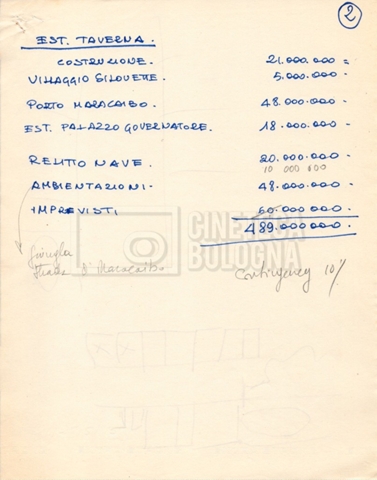 2
EST. TAVERNA.
COSTRUZIONE. 21.000.000 =
VILLAGGIO SILOUETTE. 5.000.000 -
PORTO MARACAIBO. 48.000.000 -
EST. PALAZZO GOVERNATORE. 18.000.000 -
RELITTO NAVE. 20.000.000 -
10 000 000
AMBIENTAZIONI - 48.000.000 -
IMPREVISTI 60.000.000 -
489.000.000 -
Giungla
strada d' Maracaibo
Contingency 10%
CINETECA
BOLOGNA